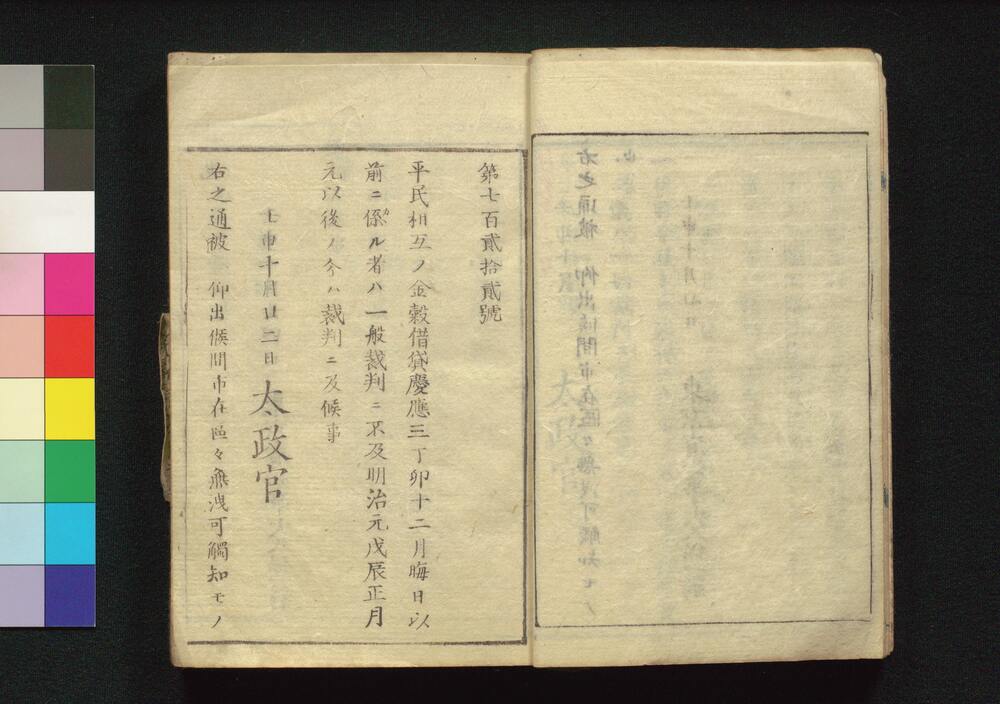 第七百貳拾貳號
平民相互ノ金穀借貸慶應三丁卯十二月晦日以
前ニ係ル者ハ一般裁判ニ不及明治元戊辰正月
元以後ノ分ハ裁判ニ及候事
壬申十月廿二日 太政官
右之通被 仰出候間市在區々無洩可觸知モノ